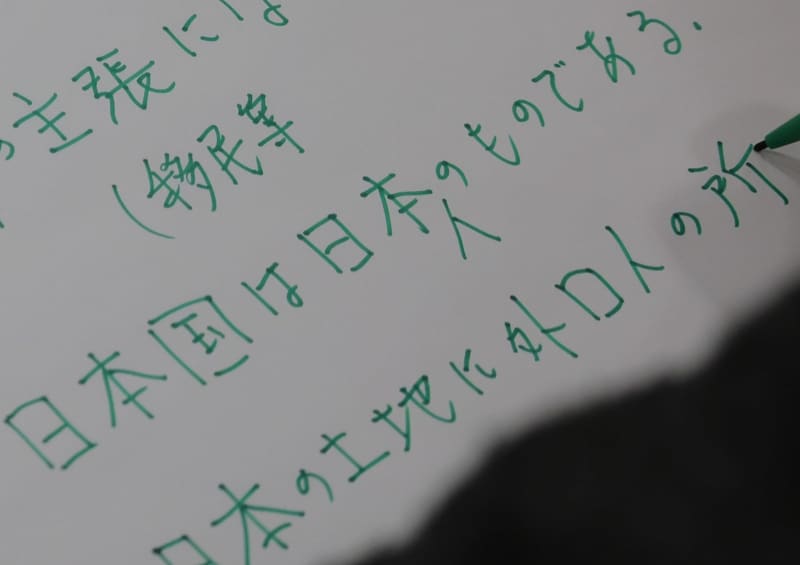 主張には
日本国は日本人のものである.
日本の土地に外口人の所